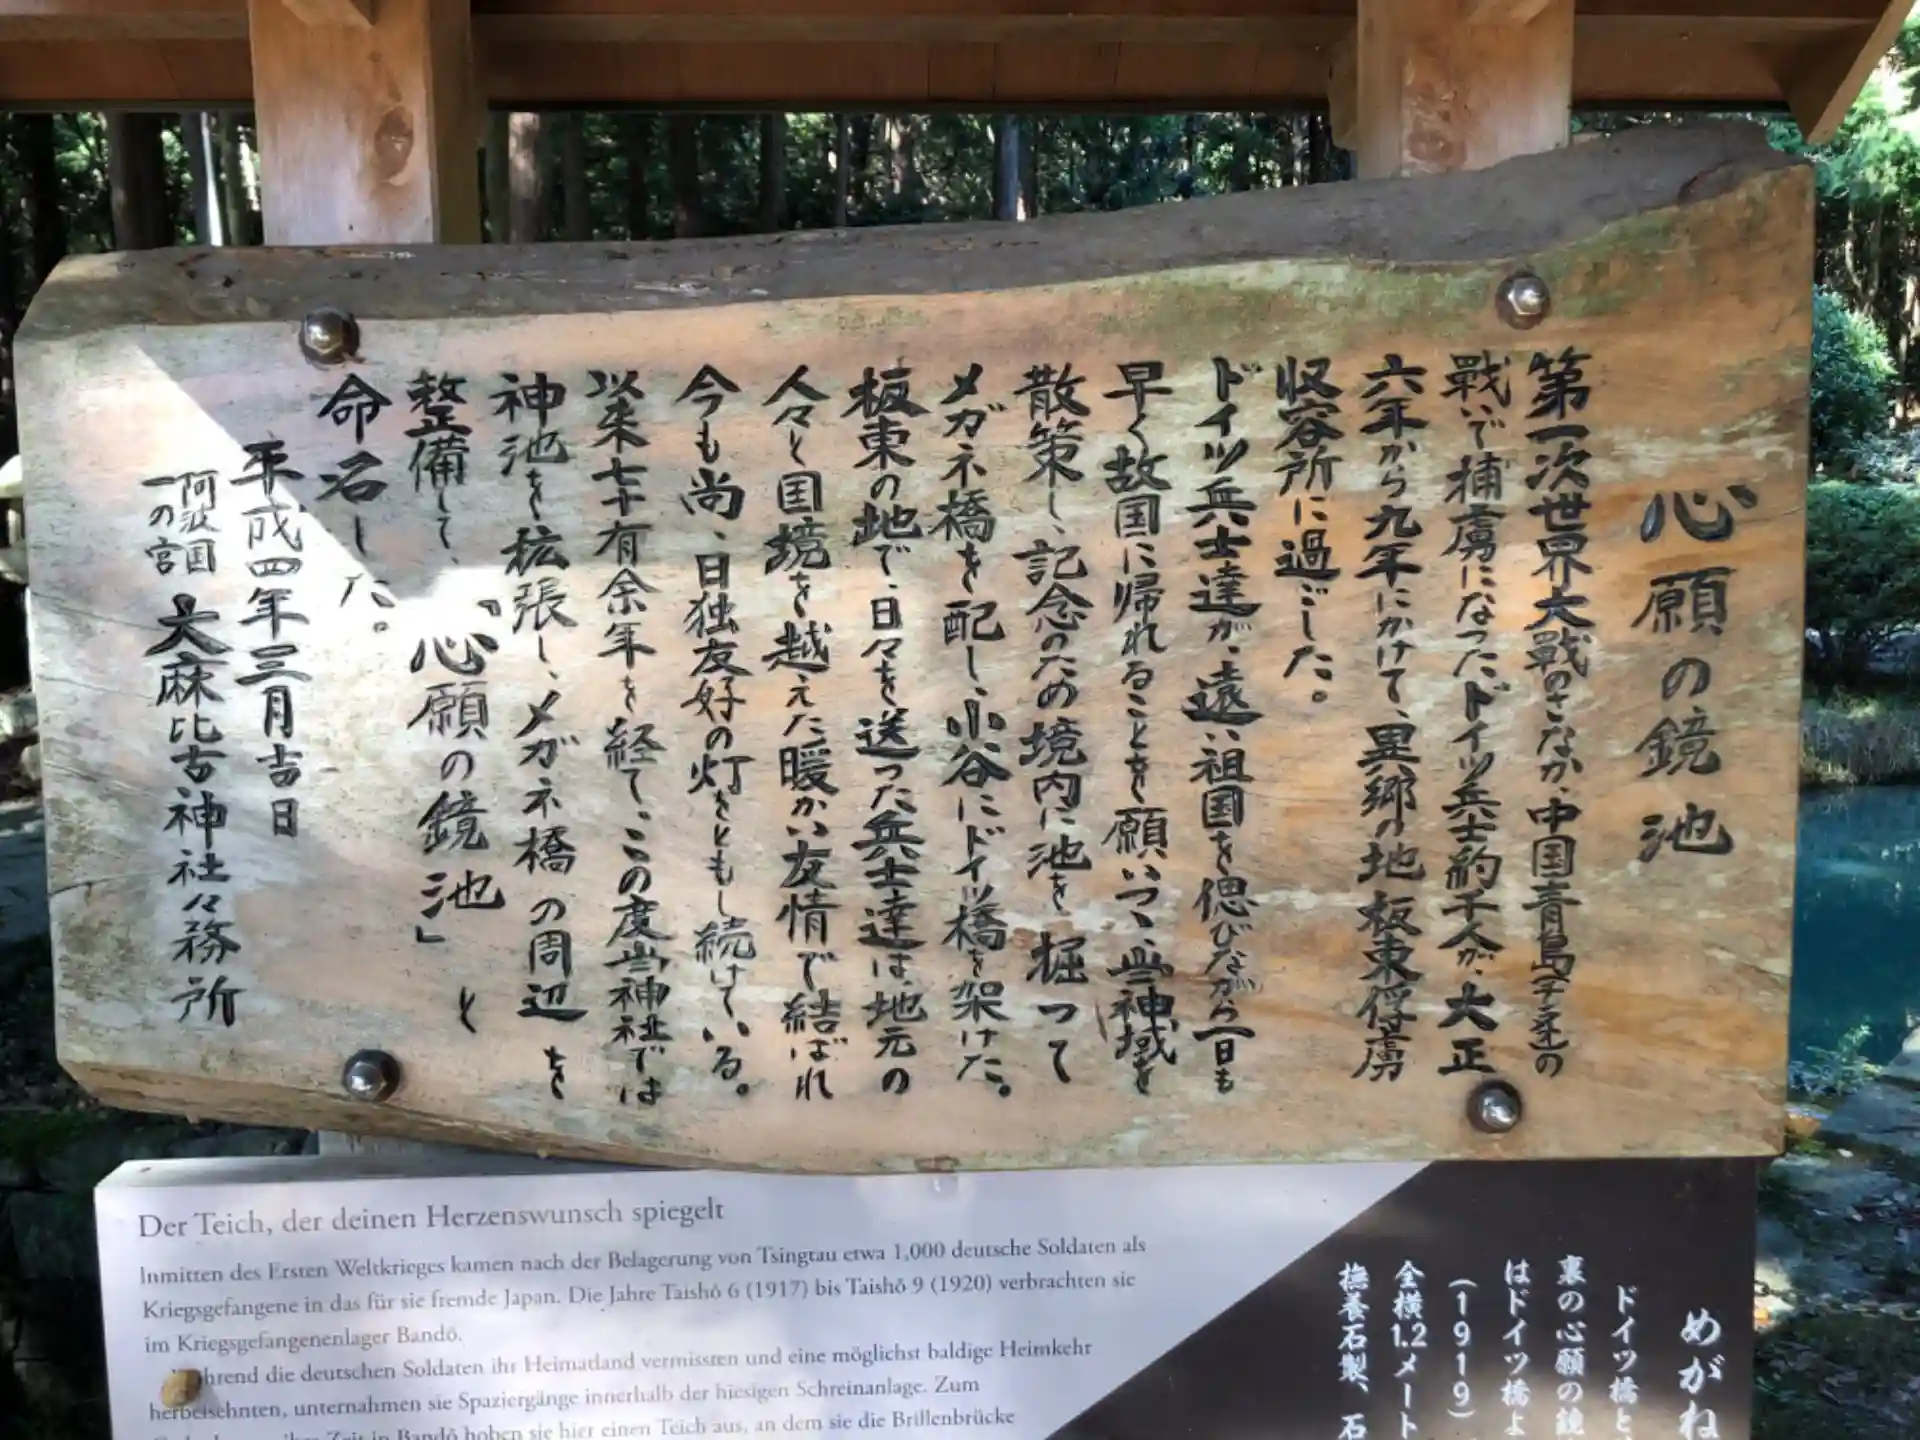 心願の鏡池
第一次世界大戦のさなか、中国青島で連の
戦いで捕虜になったドイツ兵士約千人が、大正
六年から九年にかけて、異郷の地板東俘虜
収容所に過ごした。
ドイツ兵士達が、遠い祖国を偲びながら一日も
早く故国に帰れることを願いつゝ、当神域を
散策し、記念のため境内に池を掘って
メガネ橋を配し、小谷にドイツ橋を架けた。
板東の地で、日々を送った兵士達は、地元の
人々と国境を越えた暖かい友情で結ばれ
今も尚、日独友好の灯をともし続けている。
以来七十有余年を経て、この度当神社では
神池を拡張し、メガネ橋の周辺を
整備して、「心願の鏡池」と
命名した。
平成四年三月吉日
阿波国
一の宮 大麻比古神社々務所
Der Teich, der deinen Herzenswunsch spiegelt
Inmitten des Ersten Weltkrieges kamen nach der Belagerung von Tsingtau etwa 1,000 deutsche Soldaten als
Kriegsgefangene in das für sie fremde Japan. Die Jahre Taishō 6 (1917) bis Taishō 9 (1920) verbrachten sie
im Kriegsgefangenenlager Bandō.
hrend die deutschen Soldaten ihr Heimatland vermissten und eine möglichst baldige Heimkehr
herbeisehnten, unternahmen sie Spaziergänge innerhalb der hiesigen Schreinanlage. Zum
Zeit in Bandō hoben sie hier einen Teich aus, an dem sie die Brillenbrücke
めがね
ドイツ橋と
裏の心願の鏡
はドイツ橋よ
(1919)
全横1.2メート
撫養石製、石